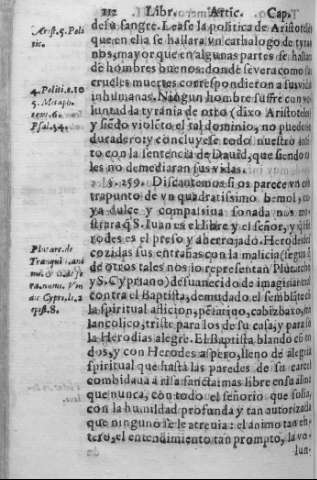 212 Libr. Artic. Cap.
de su sangre. Lease la politica de Aristoteles
que en ella se hallara vn cathalogo de tyra
nos, mayor que en algunas partes se hallara
de hombres buenos: donde se vera como sus
crueles muertes correspondieron a su vida
inhumanas. Ningun hombre suffre con vo
luntad la tyrania de otro (dixo Aristoteles
y siēdo violēto el tal dominio, no puede ser
duradero: y concluyese todo nuestro
to con la sentencia de Dauid, que siendo
les no demediaran sus vidas.
§. 259. Discantemos si os parece vn con
trapunto de vn quadratissimo bemol, co
ya dulce y compassiua sonada nos mo-
strara q̄ S. Iuan es el libre y el señor, y q̄ He
rodes es el preso y aherrojado. Herodes
cozidas sus entrañas con la malicia (segun q̄
de otros tales nos lo representan Plutarcho
y S. Cypriano) desuanecido de imaginar mal
contra el Baptista, demudado el semblāte cō
la spiritual afflicion, pēsatiuo, cabizbaxo, me
lancolico, triste para los de su casa, y para so
la Herodias alegre. El Baptista blando cō to
dos, y con Herodes aspero, lleno de alegria
spiritual que hasta las paredes de su carcel
combidaua a risa sancta: mas libre en su alma
que nunca, con todo el señorio que solia,
con la humildad profunda y tan autorizada
que ninguno se le atreuia: el animo tan en-
tero, el entendimiento tan prompto, la vo-
lun-
Arist. 5. Poli
tic.
4. Politi. c. 10
5. Metap.
tex. 6.
Psal. 54.
Plutarc. de
Tranquil. ani
Cypr. li. 2
epist. 8.